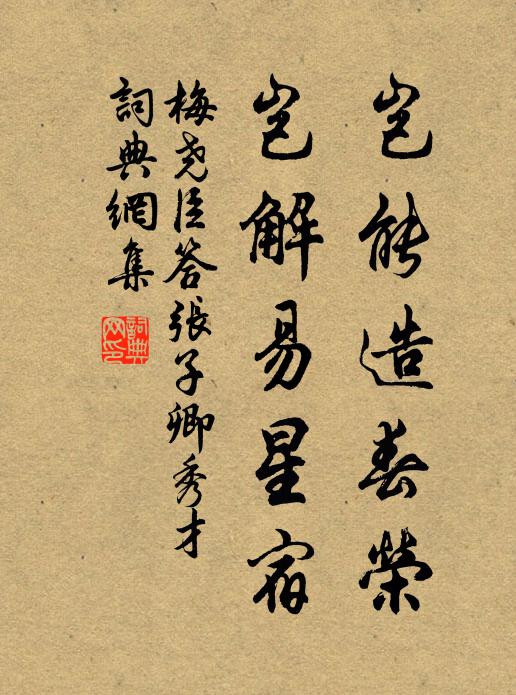 豈能造春榮
豈解易星宿
梅尧臣答張子卿秀才
詞典網集
詞典网印